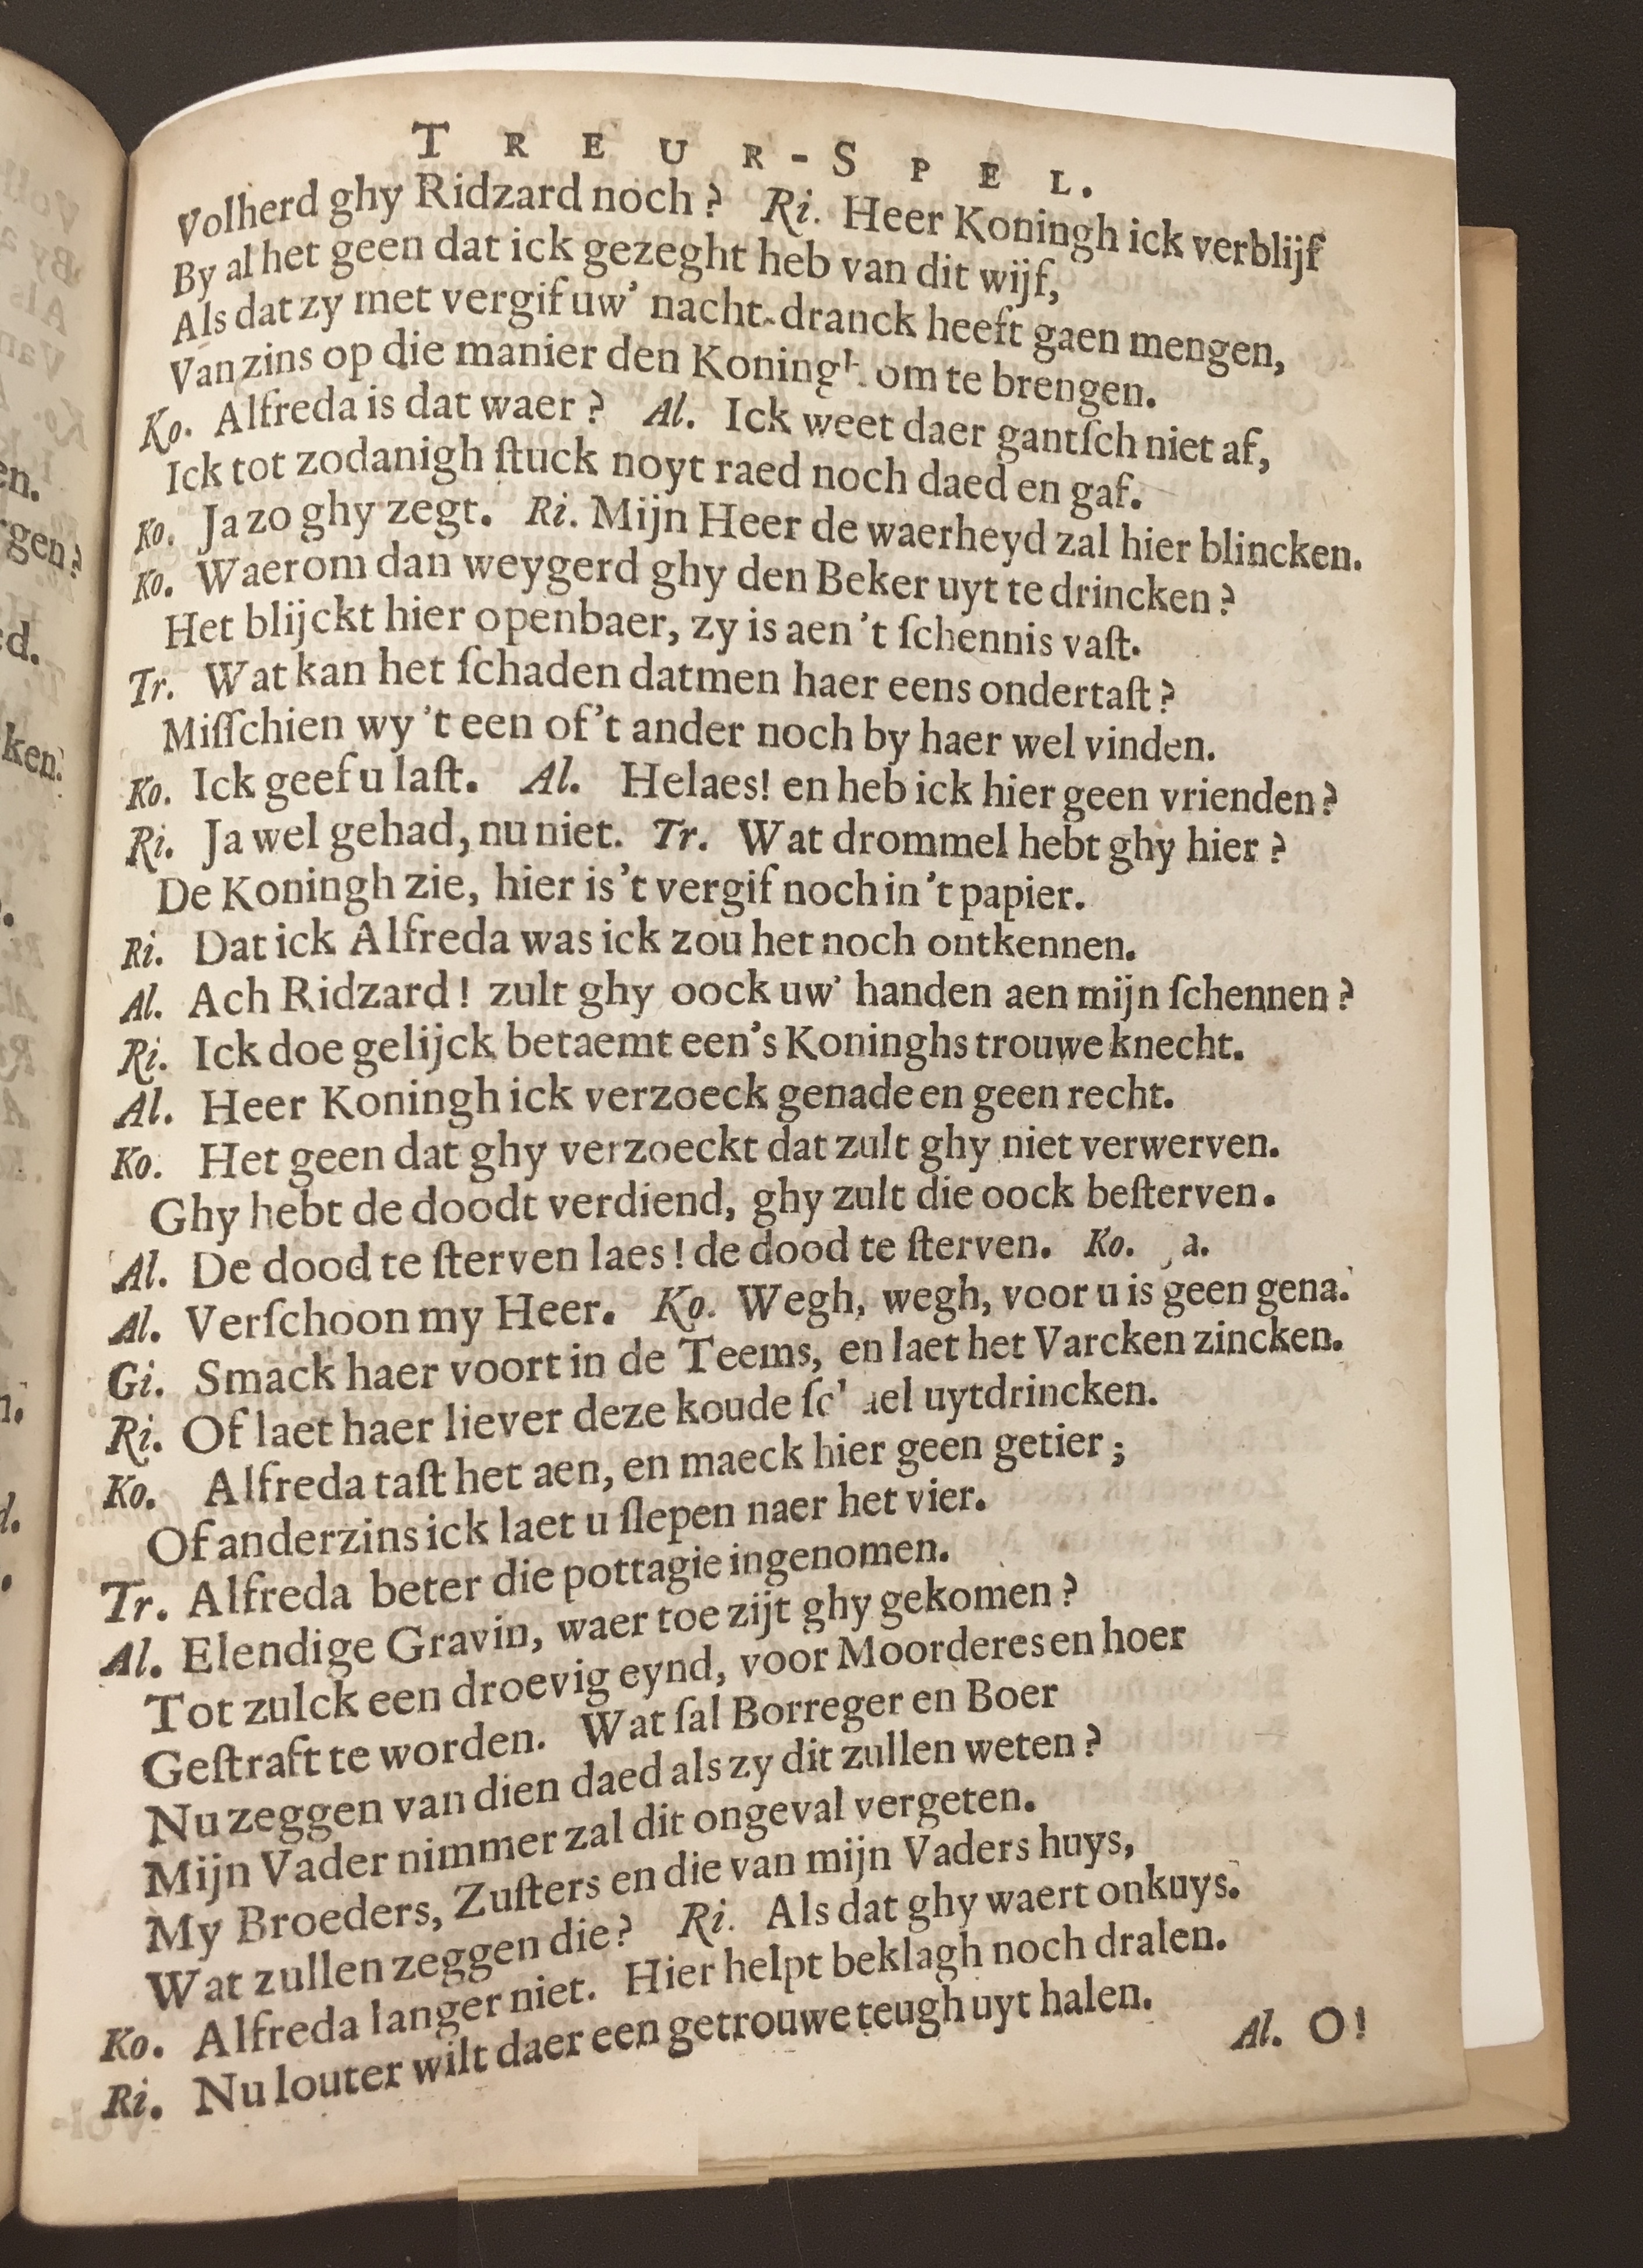 TREUR-SPEL.
Volherd ghy Ridzard noch? Ri. Heer Koningh ick verblijf
By al het geen dat ick gezeght heb van dit wijf,
Als dat zy met vergif uw' nacht-dranck heeft gaen mengen,
Van zins op die manier den Koningh om te brengen.
Ko. Alfreda is dat waer? Al. Ick weet daer gantſch niet af,
Ick tot zodanigh ſtuck noyt raed noch daed en gaf.
Ko. Ja zo ghy zegt. Ri. Mijn Heer de waerheyd zal hier blincken.
Ko. Waerom dan weygerd ghy den Beker uyt te drincken?
Het blijckt hier openbaer, zy is aen 't ſchennis vaſt.
Tr. Wat kan het ſchaden datmen haer eens ondertaſt?
Miſſchien wy 't een of 't ander noch by haer wel vinden.
Ko. Ick geef u laſt. Al. Helaes! en heb ick hier geen vrienden?
Ri. Ja wel gehad, nu niet. Tr. Wat drommel hebt ghy hier?
De Koningh zie, hier is 't vergif noch in 't papier.
Ri. Dat ick Alfreda was ick zou het noch ontkennen.
Al. Ach Ridzard! zult ghy oock uw' handen aen mijn ſchennen?
Ri. Ick doe gelijck betaemt een's Koninghs trouwe knecht.
Al. Heer Koningh ick verzoeck genade en geen recht.
Ko. Het geen dat ghy verzoeckt dat zult ghy niet verwerven.
Ghy hebt de doodt verdiend, ghy zult die oock beſterven.
Al. De dood te ſterven laes! de dood te ſterven. Ko. a.
Al. Verſchoon my Heer. Ko. Wegh, wegh, voor u is geen gena.
Gi. Smack haer voort in de Teems, en laet het Varcken zincken.
Ri. Of laet haer liever deze koude uytdrincken.
Ko. Alfreda taſt het aen, en maeck hier geen getier;
Of anderzins ick laet u ſlepen naer het vier.
Tr. Alfreda beter die pottagie ingenomen.
Al. Elendige Gravin, waer toe zijt ghy gekomen?
Tot zulck een droevig eynd, voor Moorderes en hoer
Geſtraft te worden. Wat ſal Borreger en Boer
Nu zeggen van dien daed als zy dit zullen weten?
Mijn Vader nimmer zal dit ongeval vergeten.
My Broeders, Zuſters en die van mijn Vaders huys,
Wat zullen zeggen die? Ri. Als dat ghy waert onkuys.
Ko. Alfreda langer niet. Hier helpt beklagh noch dralen.
Ri. Nu louter wilt daer een getrouwe teugh uyt halen.
Al. O!
en.
gen?
d.
ken.